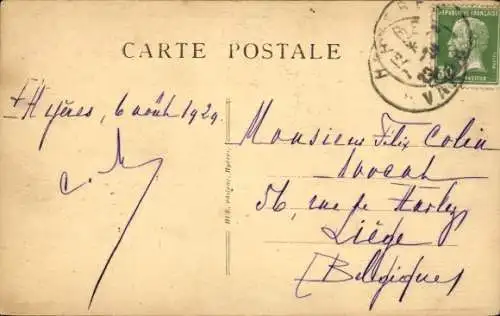 CARTE POSTALE
REPUBLIQUE FRANÇAISE
POSTES
PASTEUR
Hyères, 6 août 1929
Monsieur Félix Colin
avocat
56, rue de Harlez
Liège
(Belgique)